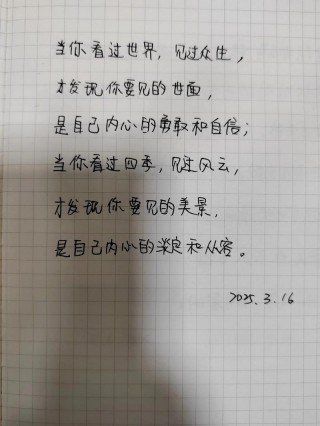 当你看过世界，见过众生，
才发现你要见的世面，
是自己内心的勇敢和自信；
当你看过四季，见过风云，
才发现你要见的美景，
是自己内心的淡定和从容。
2025.3.16